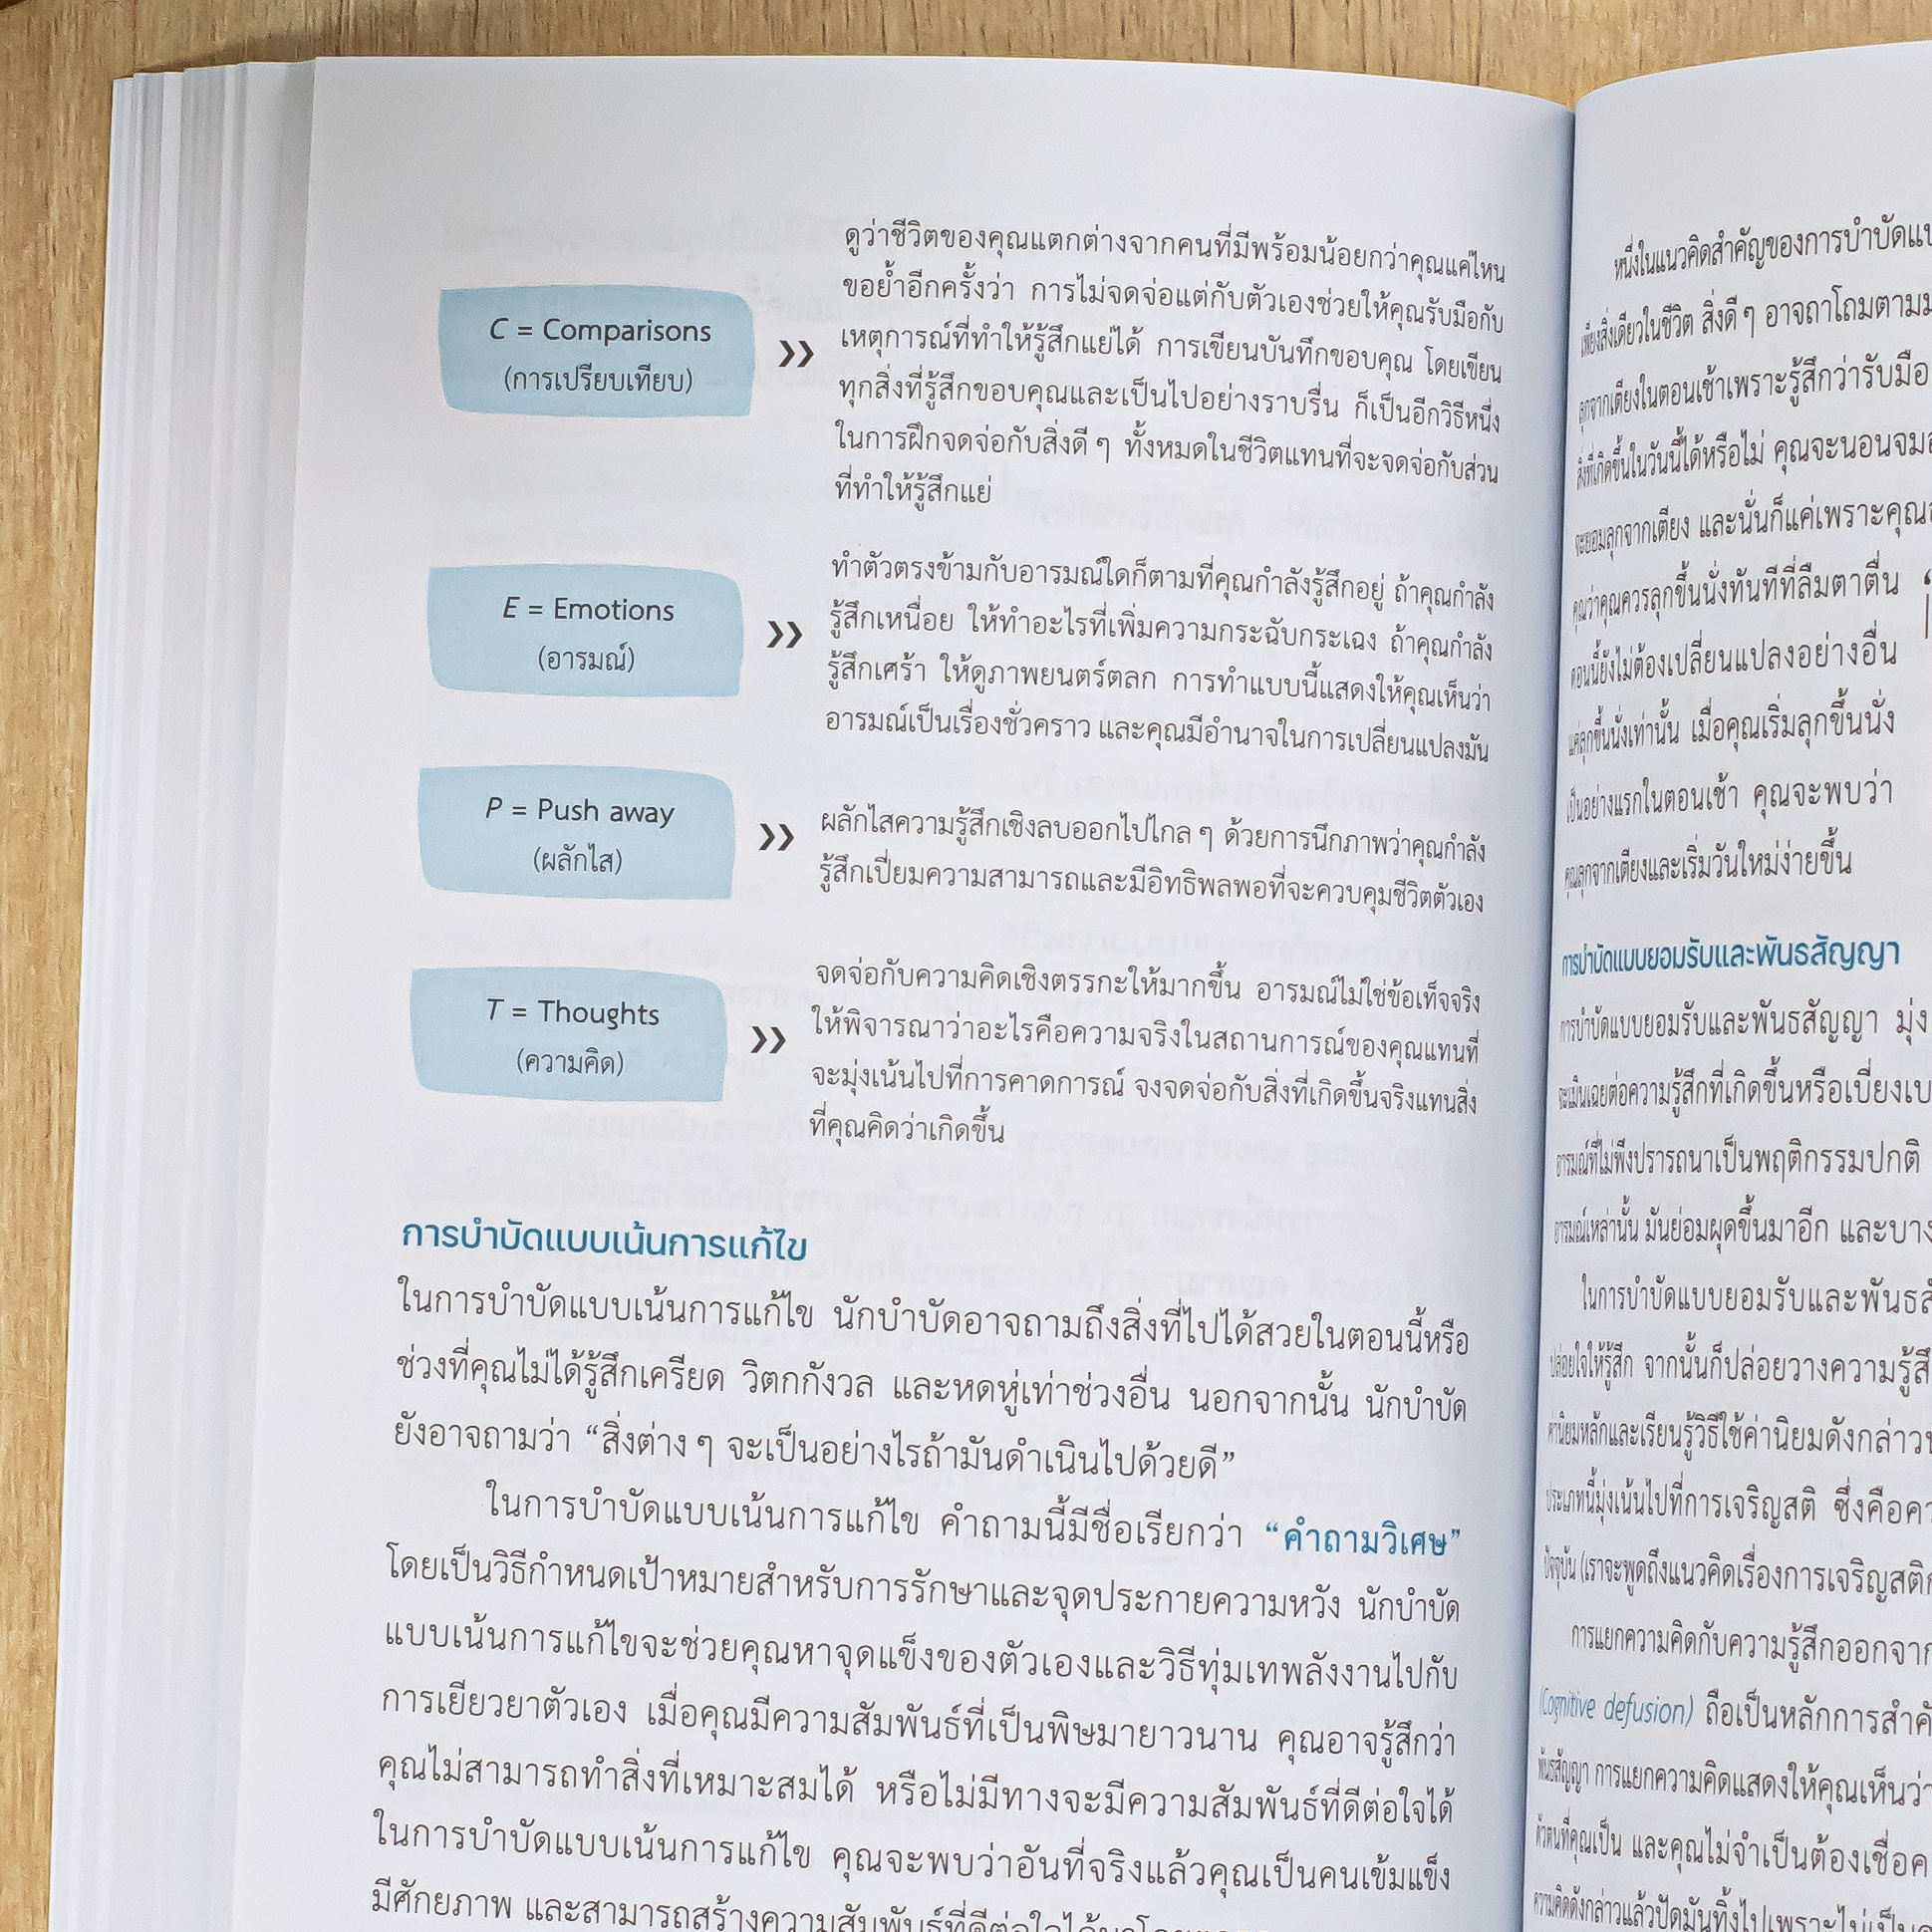 C = Comparisons
(การเปรียบเทียบ)
ดูว่าชีวิตของคุณแตกต่างจากคนที่มีพร้อมน้อยกว่าคุณแค่ไหน
ขอย้ำอีกครั้งว่า การไม่จดจ่อแต่กับตัวเองช่วยให้คุณรับมือกับ
เหตุการณ์ที่ทำให้รู้สึกแย่ได้ การเขียนบันทึกขอบคุณ โดยเขียน
ทุกสิ่งที่รู้สึกขอบคุณและเป็นไปอย่างราบรื่น ก็เป็นอีกวิธีหนึ่ง
ในการฝึกจดจ่อกับสิ่งดี ๆ ทั้งหมดในชีวิตแทนที่จะจดจ่อกับส่วน
ที่ทำให้รู้สึกแย่
E = Emotions
(อารมณ์)
ทำตัวตรงข้ามกับอารมณ์ใดก็ตามที่คุณกำลังรู้สึกอยู่ ถ้าคุณกำลัง
รู้สึกเหนื่อย ให้ทำอะไรที่เพิ่มความกระฉับกระเฉง ถ้าคุณกำลัง
รู้สึกเศร้า ให้ดูภาพยนตร์ตลก การทำแบบนี้แสดงให้คุณเห็นว่า
อารมณ์เป็นเรื่องชั่วคราว และคุณมีอำนาจในการเปลี่ยนแปลงมัน
P = Push away
(ผลักไส)
ผลักไสความรู้สึกเชิงลบออกไปไกล ๆ ด้วยการนึกภาพว่าคุณกำลัง
รู้สึกเปี่ยมความสามารถและมีอิทธิพลพอที่จะควบคุมชีวิตตัวเอง
T = Thoughts
(ความคิด)
จดจ่อกับความคิดเชิงตรรกะให้มากขึ้น อารมณ์ไม่ใช่ข้อเท็จจริง
ให้พิจารณาว่าอะไรคือความจริงในสถานการณ์ของคุณแทนที่
จะมุ่งเน้นไปที่การคาดการณ์ จงจดจ่อกับสิ่งที่เกิดขึ้นจริงแทนสิ่ง
ที่คุณคิดว่าเกิดขึ้น
การบำบัดแบบเน้นการแก้ไข
ในการบำบัดแบบเน้นการแก้ไข นักบำบัดอาจถามถึงสิ่งที่ไปได้สวยในตอนนี้หรือ
ช่วงที่คุณไม่ได้รู้สึกเครียด วิตกกังวล และหดหู่เท่าช่วงอื่น นอกจากนั้น นักบำบัด
ยังอาจถามว่า “สิ่งต่าง ๆ จะเป็นอย่างไรถ้ามันดำเนินไปด้วยดี”
ในการบำบัดแบบเน้นการแก้ไข คำถามนี้มีชื่อเรียกว่า “คำถามวิเศษ”
โดยเป็นวิธีกำหนดเป้าหมายสำหรับการรักษาและจุดประกายความหวัง นักบำบัด
แบบเน้นการแก้ไขจะช่วยคุณหาจุดแข็งของตัวเองและวิธีทุ่มเทพลังงานไปกับ
การเยียวยาตัวเอง เมื่อคุณมีความสัมพันธ์ที่เป็นพิษมายาวนาน คุณอาจรู้สึกว่า
คุณไม่สามารถทำสิ่งที่เหมาะสมได้ หรือไม่มีทางจะมีความสัมพันธ์ที่ดีต่อใจได้
ในการบำบัดแบบเน้นการแก้ไข คุณจะพบว่าอันที่จริงแล้วคุณเป็นคนเข้มแข็ง
มีศักยภาพ และสามารถสร้างความสัมพันธ์ที่ดีต่อใจได้
หนึ่งในแนวคิดสำคัญของการบำบัด
เพียงสิ่งเดียวในชีวิต สิ่งดี ๆ อาจถาโถมตามม
ลุกจากเตียงในตอนเช้าเพราะรู้สึกว่ารับมือ
สิ่งที่เกิดขึ้นในวันนี้ได้หรือไม่ คุณจะนอนจม
จะยอมลุกจากเตียง และนั่นก็แค่เพราะคุณ
คุณว่าคุณควรลุกขึ้นนั่งทันทีที่ลืมตาตื่น
ตอนนี้ยังไม่ต้องเปลี่ยนแปลงอย่างอื่น
แค่ลุกขึ้นนั่งเท่านั้น เมื่อคุณเริ่มลุกขึ้นนั่ง
เป็นอย่างแรกในตอนเช้า คุณจะพบว่า
คุณลุกจากเตียงและเริ่มวันใหม่ง่ายขึ้น
การบำบัดแบบยอมรับและพันธสัญญา
การบำบัดแบบยอมรับและพันธสัญญา มุ่ง
จะเมินเฉยต่อความรู้สึกที่เกิดขึ้นหรือเบี่ยงเบ
อารมณ์ที่ไม่พึงปรารถนาเป็นพฤติกรรมปกติ
อารมณ์เหล่านั้น มันย่อมผุดขึ้นมาอีก และบาง
ในการบำบัดแบบยอมรับและพันธสั
ปล่อยใจให้รู้สึก จากนั้นก็ปล่อยวางความรู้สึ
ค่านิยมหลักและเรียนรู้วิธีใช้ค่านิยมดังกล่าว
ประเภทนี้มุ่งเน้นไปที่การเจริญสติ ซึ่งคือคว
ปัจจุบัน (เราจะพูดถึงแนวคิดเรื่องการเจริญสติ
การแยกความคิดกับความรู้สึกออกจาก
(Cognitive defusion) ถือเป็นหลักการสำคั
พันธสัญญา การแยกความคิดแสดงให้คุณเห็นว่า
ตัวตนที่คุณเป็น และคุณไม่จำเป็นต้องเชื่อค
ความคิดดังกล่าวแล้วปัดมันทิ้งไปเพราะไม่เป็น